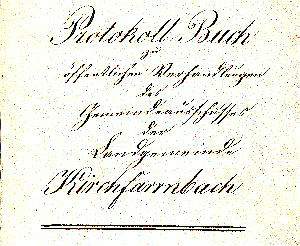 Protokoll Buch
zu
öffentlichen Verhandlungen
des
Gemeindeausschusses
der
Landgemeinde
Kirchfarrnbach